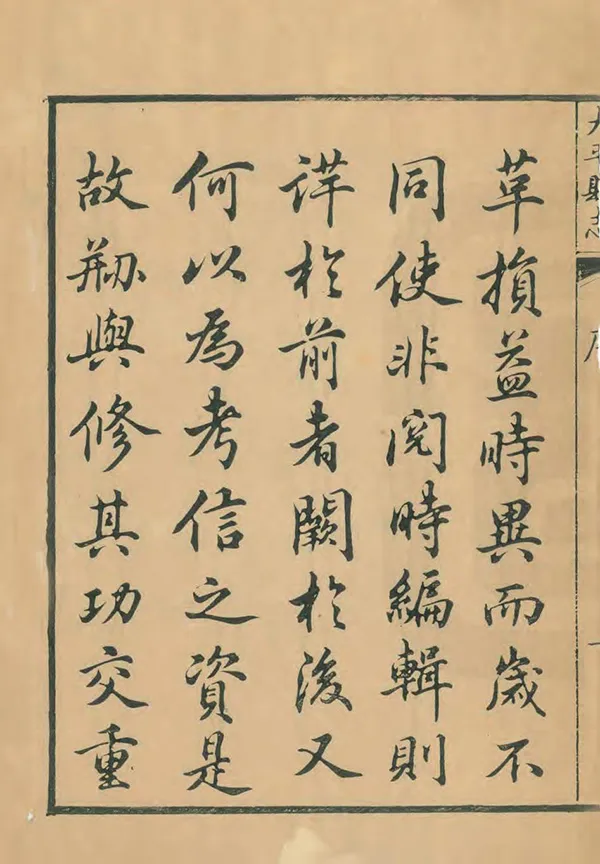 革損益時異而歲不
同使非閱時編輯則
詳於前者闕於後又
何以為考信之資是
故刱與修其功交重